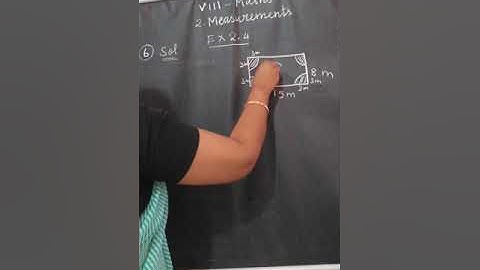 VIII - Maths
2. Measurements
Ex 2.4
6 Sol
3m
3m
3m
8 m
3m
3m
15m